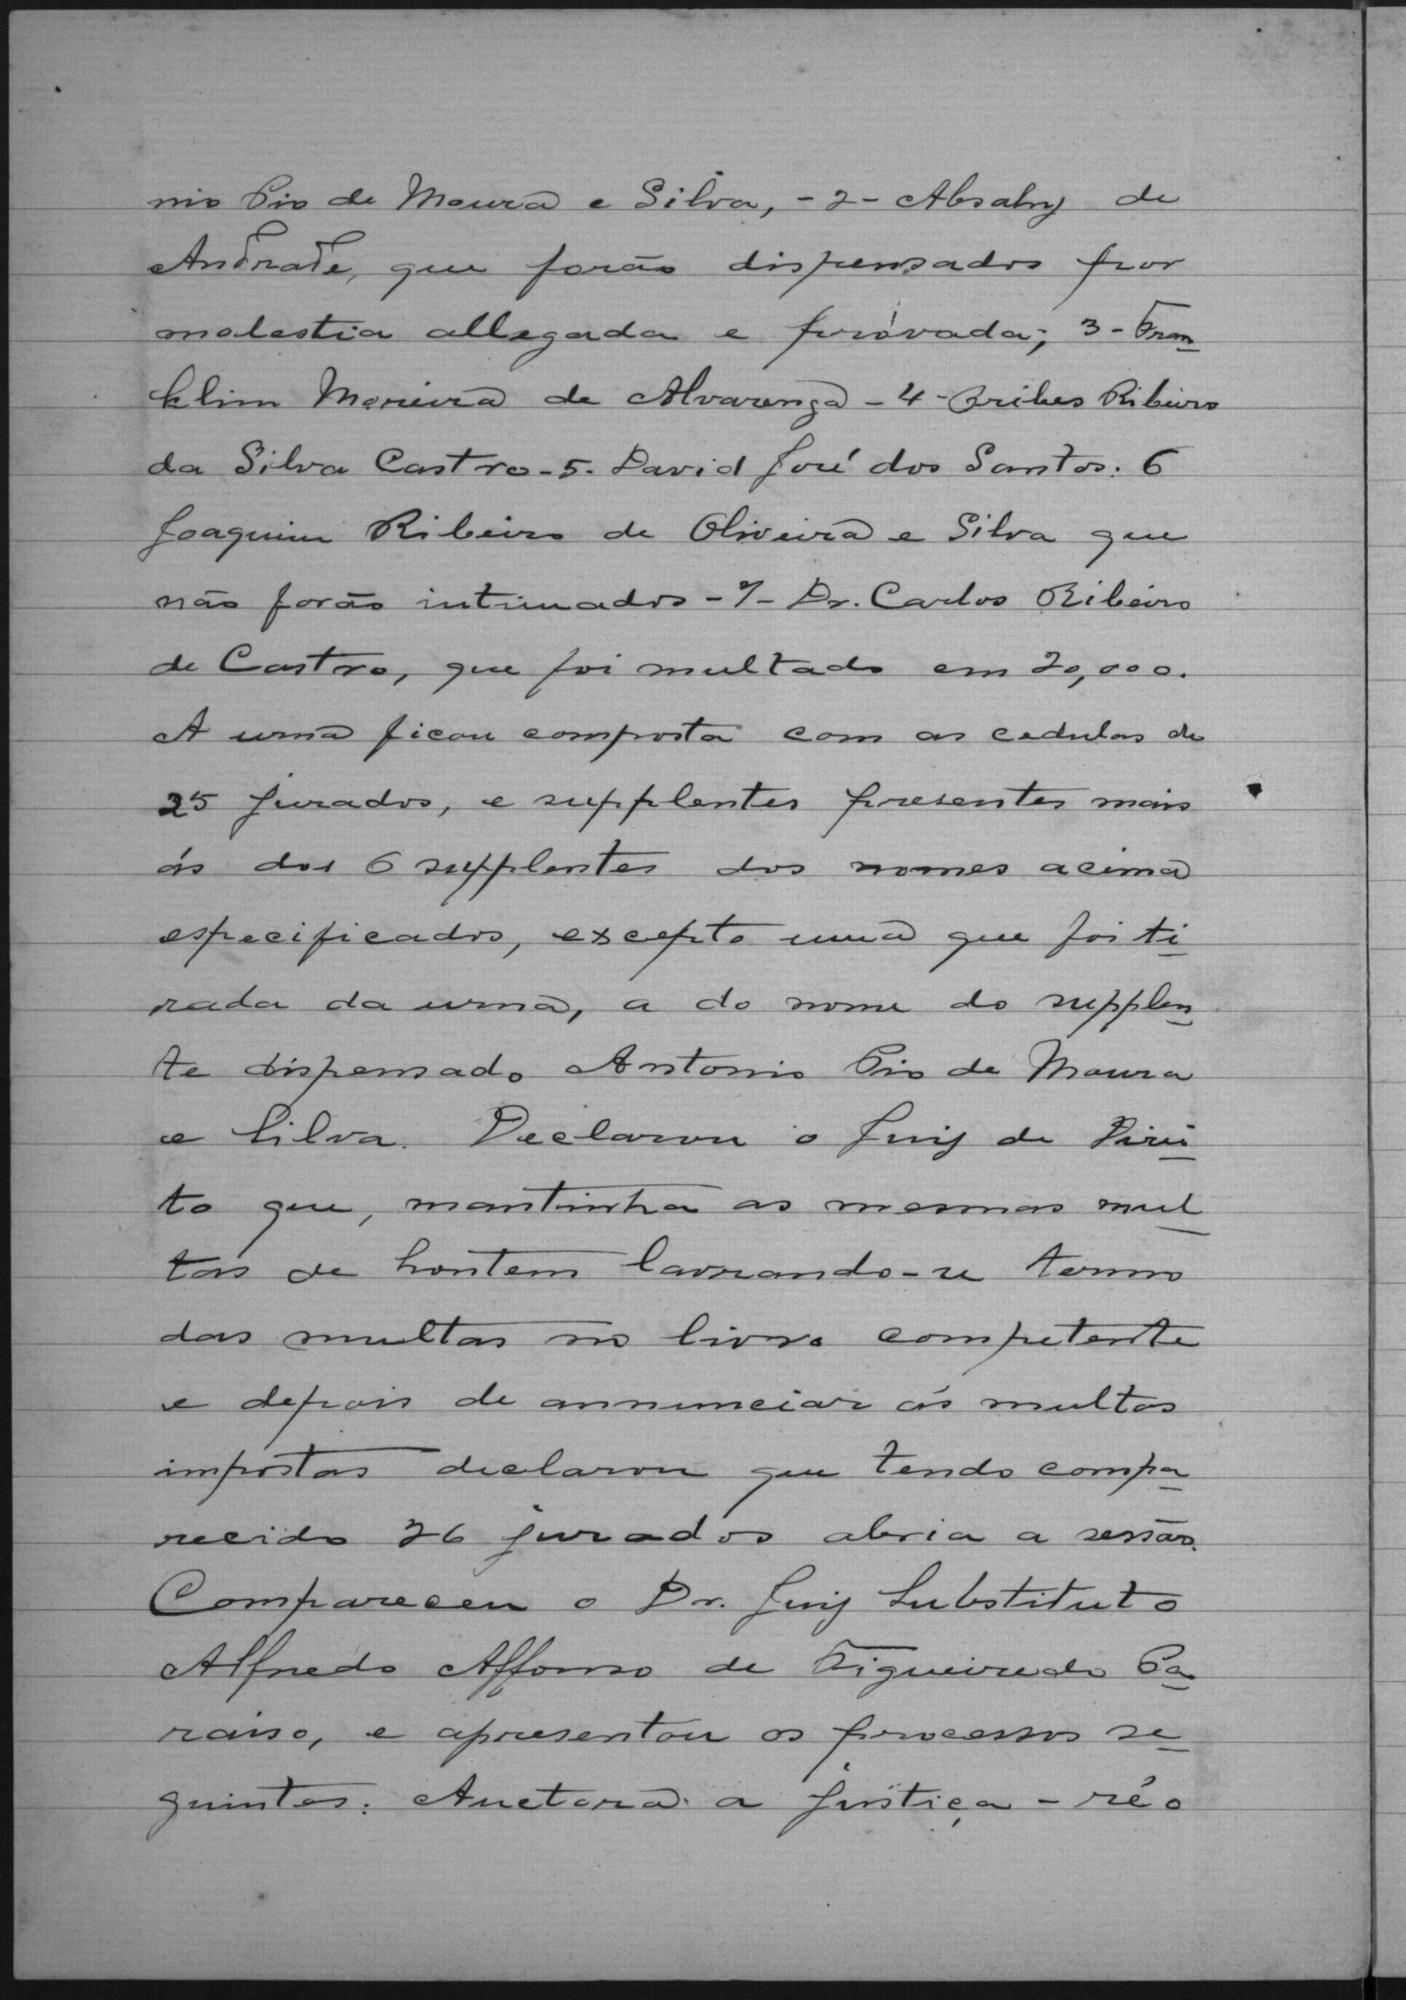 nio Pio de Moura e Silva, - 2 - Absahy de
Andrade, que forão dispensados por
molestia allegada e provada; 3 - Fran
klim Moreira de Alvarenga - 4 - Oribes Ribeiro
da Silva Castro - 5 - David José dos Santos. 6
Joaquim Ribeiro de Oliveira e Silva que
não forão intimados - 7 - Dr. Carlos Ribeiro
de Castro, que foi multado em 20,000.
A urna ficou composta com as cedulas de
25 jurados, e supplentes presentes mais
ás dos 6 supplentes dos nomes acima
especificados, excepto uma que foi ti
rada da urna, a do nome do supplen
te dispensado Antonio Pio de Moura
e Silva. Declarou o Juiz de Direi
to que, mantinha as mesmas mul
tas de hontem lavrando-se termo
das multas no livro competente
e depois de annunciar ás multas
impostas declarou que tendo compa
recido 26 jurados abria a sessão.
Compareceu o Dr. Juiz Substituto
Alfredo Affonso de Figueiredo Pa
raiso, e apresentou os processos se
guintes: Auctora a Justiça - réo